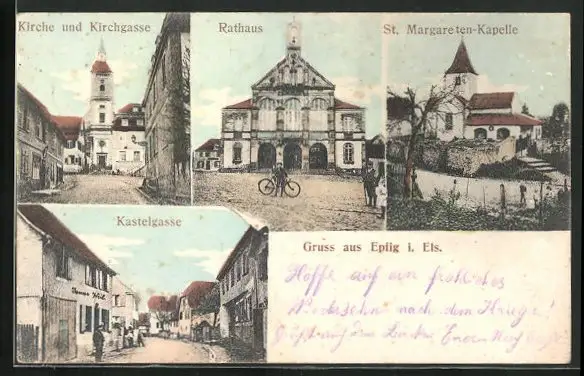 Kirche und Kirchgasse
Rathaus
St. Margareten-Kapelle
Kastelgasse
Gruss aus Epfig i. Els.
Hoffe auf ein frohliches
Wiedersehn nach dem Kriege!